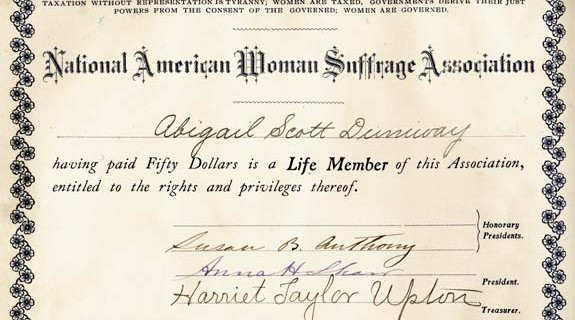 TAXATION WITHOUT REPRESENTATION IS TYRANNY; WOMEN ARE TAXED, GOVERNMENTS DERIVE THEIR JUST
POWERS FROM THE CONSENT OF THE GOVERNED; WOMEN ARE GOVERNED.
National American Woman Suffrage Association
Abigail Scott Duniway
having paid Fifty Dollars is a Life Member of this Association,
entitled to the rights and privileges thereof.
Honorary
Presidents.
Susan B. Anthony
Anna H Shaw
President.
Harriet Taylor Upton
Treasurer.